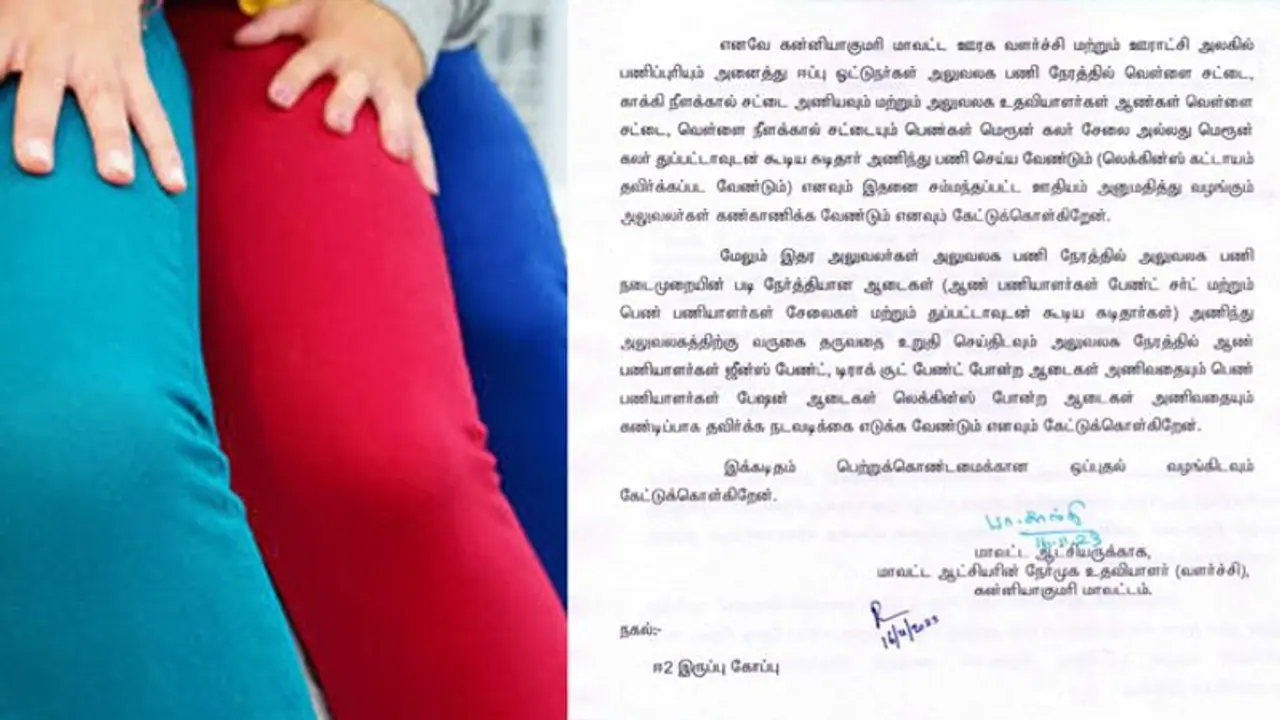 எனவே கன்னியாகுமரி மாவட்ட ஊரக வளர்ச்சி மற்றும் ஊராட்சி அலகில்
பணிப்புரியும் அனைத்து ஈப்பு ஓட்டுநர்கள் அலுவலக பணி நேரத்தில் வெள்ளை சட்டை,
காக்கி நீளக்கால் சட்டை அணியவும் மற்றும் அலுவலக உதவியாளர்கள் ஆண்கள் வெள்ளை
சட்டை, வெள்ளை நீளக்கால் சட்டையும் பெண்கள் மெரூன் கலர் சேலை அல்லது மெரூன்
கலர் துப்பட்டாவுடன் கூடிய சுடிதார் அணிந்து பணி செய்ய வேண்டும் (லெக்கின்ஸ் கட்டாயம்
தவிர்க்கப்பட வேண்டும்) எனவும் இதனை சம்மந்தப்பட்ட ஊதியம் அனுமதித்து வழங்கும்
அலுவலர்கள் கண்காணிக்க வேண்டும் எனவும் கேட்டுக்கொள்கிறேன்.
மேலும் இதர அலுவலர்கள் அலுவலக பணி நேரத்தில் அலுவலக பணி
நடைமுறையின் படி நேர்த்தியான ஆடைகள் (ஆண் பணியாளர்கள் பேண்ட் சர்ட் மற்றும்
பெண் பணியாளர்கள் சேலைகள் மற்றும் துப்பட்டாவுடன் கூடிய சுடிதார்கள்) அணிந்து
அலுவலகத்திற்கு வருகை தருவதை உறுதி செய்திடவும் அலுவலக நேரத்தில் ஆண்
பணியாளர்கள் ஜீன்ஸ் பேண்ட், டிராக் சூட் பேண்ட் போன்ற ஆடைகள் அணிவதையும் பெண்
பணியாளர்கள் பேஷன் ஆடைகள் லெக்கின்ஸ் போன்ற ஆடைகள் அணிவதையும்
கண்டிப்பாக தவிர்க்க நடவடிக்கை எடுக்க வேண்டும் எனவும் கேட்டுக்கொள்கிறேன்.
இக்கடிதம் பெற்றுக்கொண்டமைக்கான ஒப்புதல் வழங்கிடவும்
கேட்டுக்கொள்கிறேன்.
மாவட்ட ஆட்சியருக்காக,
மாவட்ட ஆட்சியரின் நேர்முக உதவியாளர் (வளர்ச்சி),
கன்னியாகுமரி மாவட்டம்.
நகல்:-
16/11/2023
ஈ2 இருப்பு கோப்பு